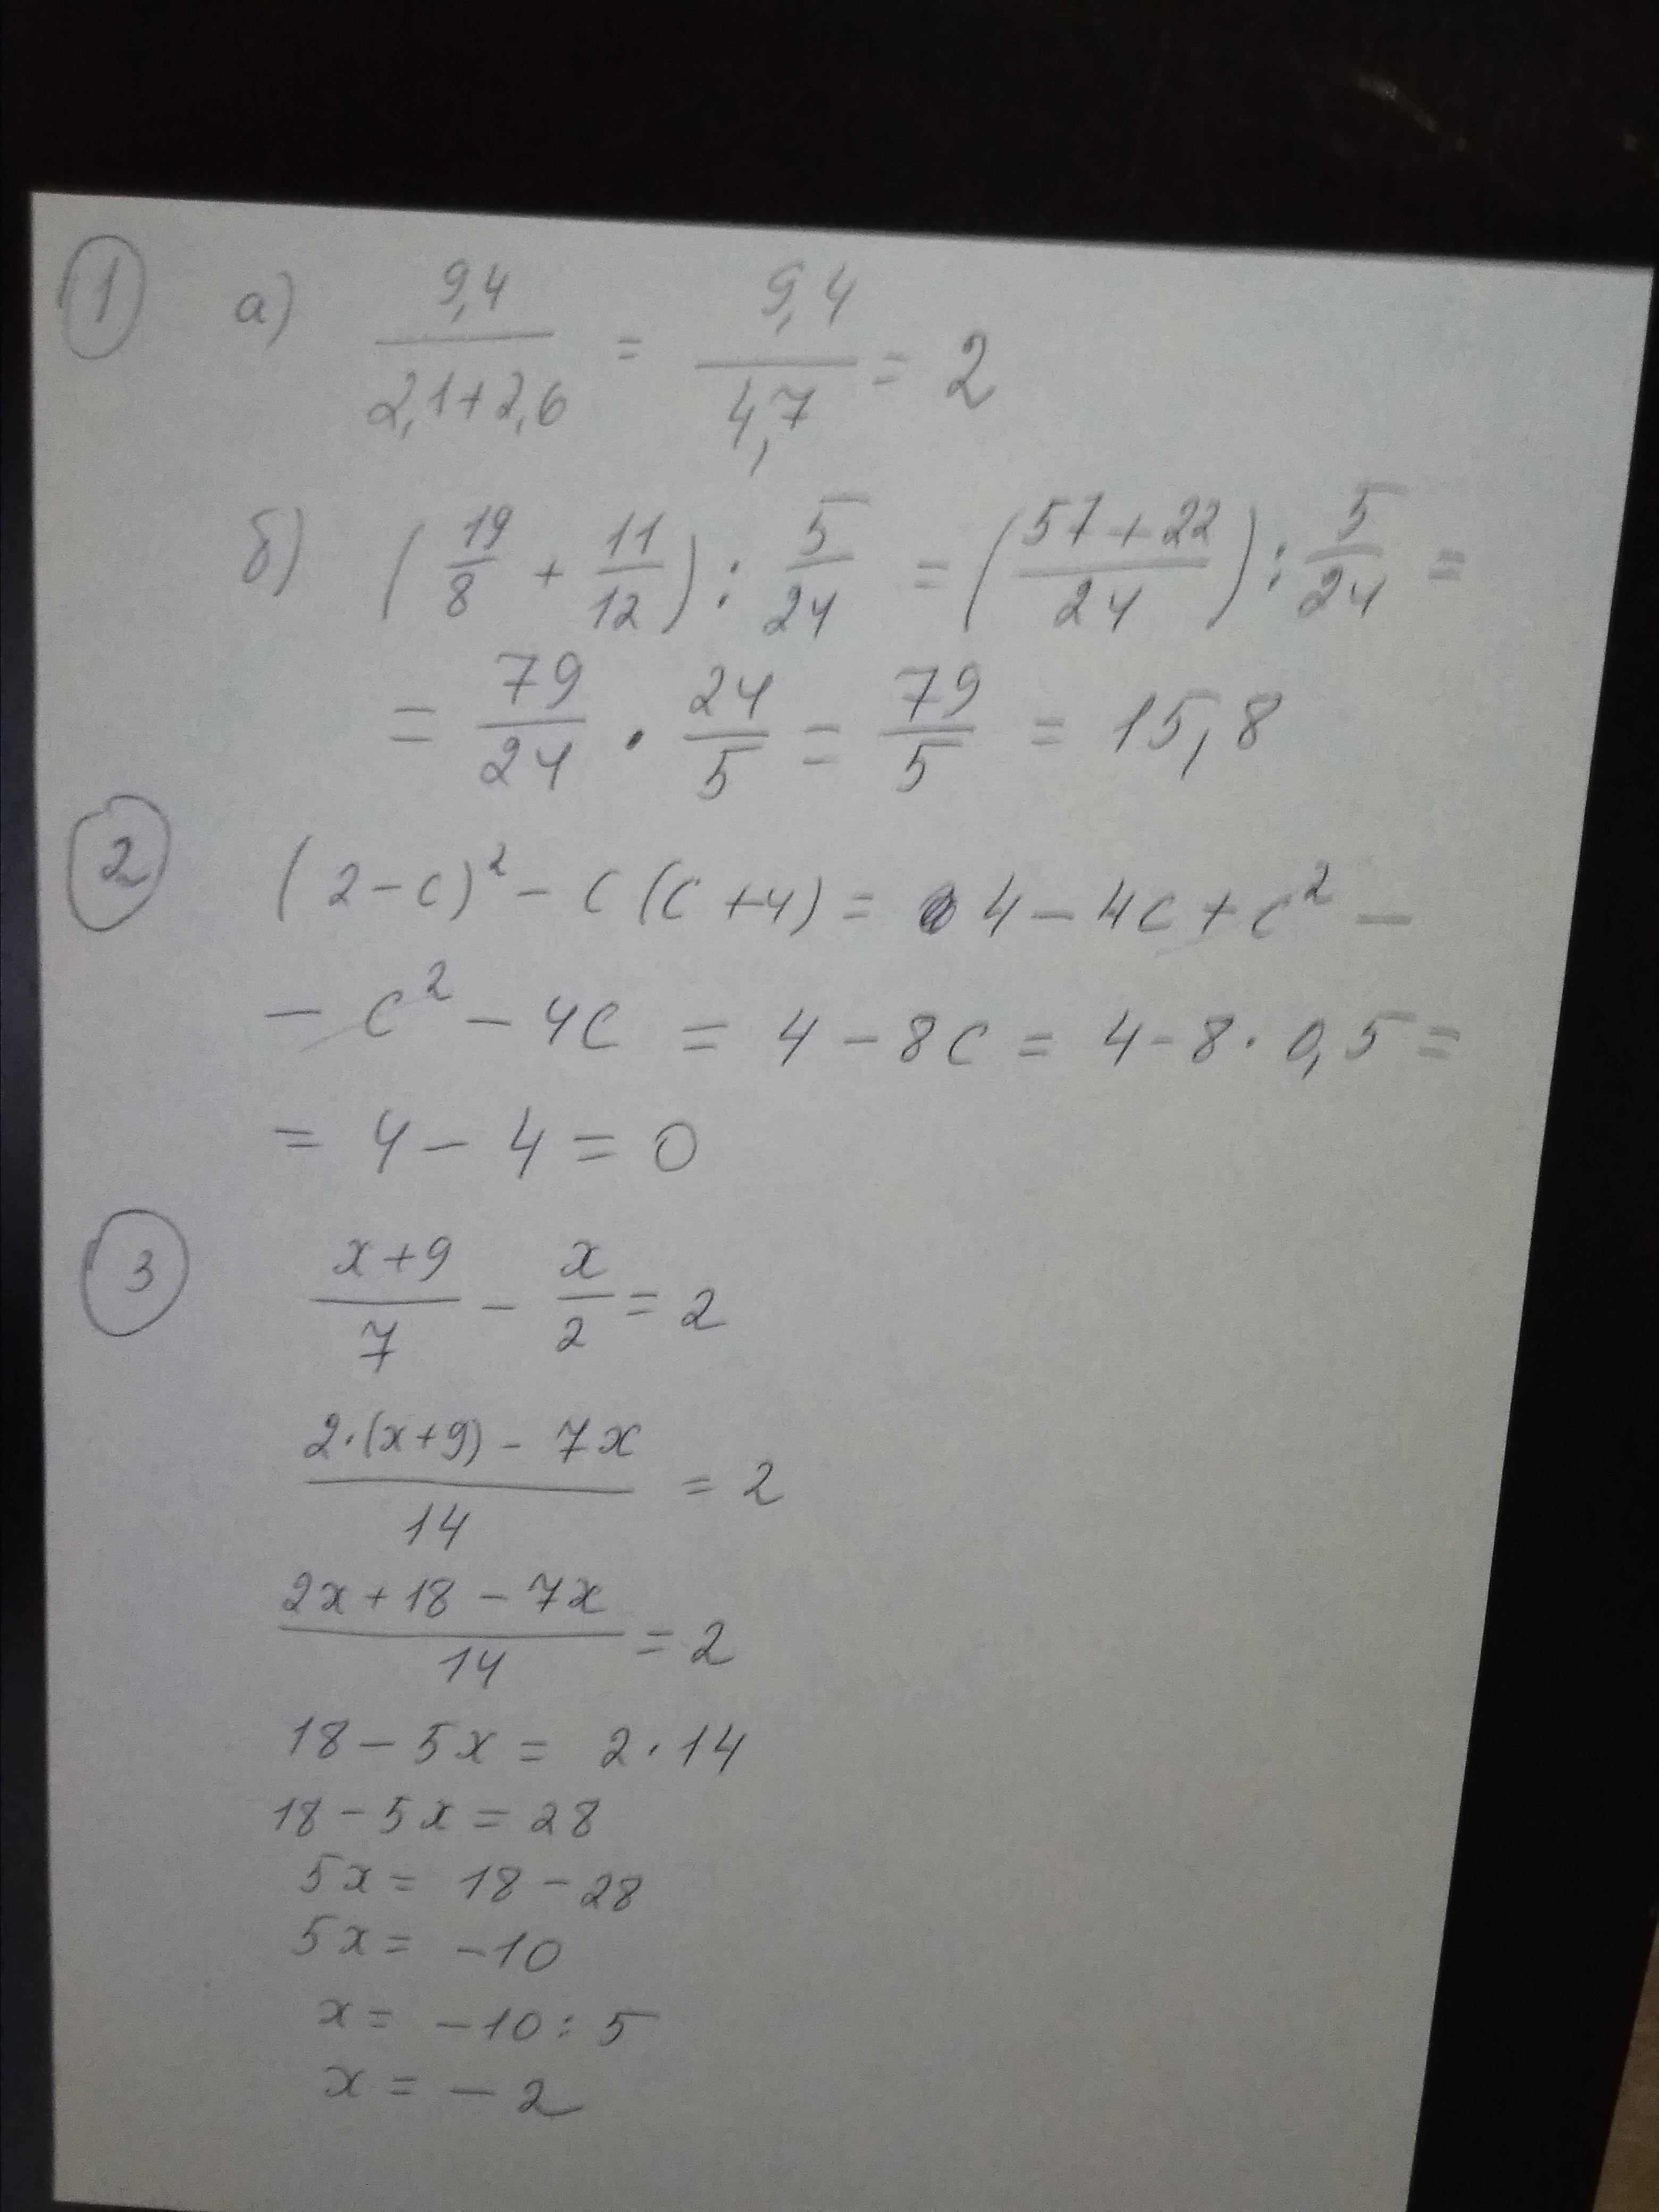 1 а) 9,4/(2,1+2,6) = 9,4/4,7 = 2
б) (19/8 + 11/12) : 5/24 = ((57+22)/24) : 5/24 =
= 79/24 · 24/5 = 79/5 = 15,8
2 (2-c)² - c(c+4) = 4 - 4c + c² -
- c² - 4c = 4 - 8c = 4 - 8 · 0,5 =
= 4 - 4 = 0
3 (x+9)/7 - x/2 = 2
(2·(x+9) - 7x)/14 = 2
(2x+18 - 7x)/14 = 2
18 - 5x = 2·14
18 - 5x = 28
5x = 18 - 28
5x = -10
x = -10 : 5
x = -2